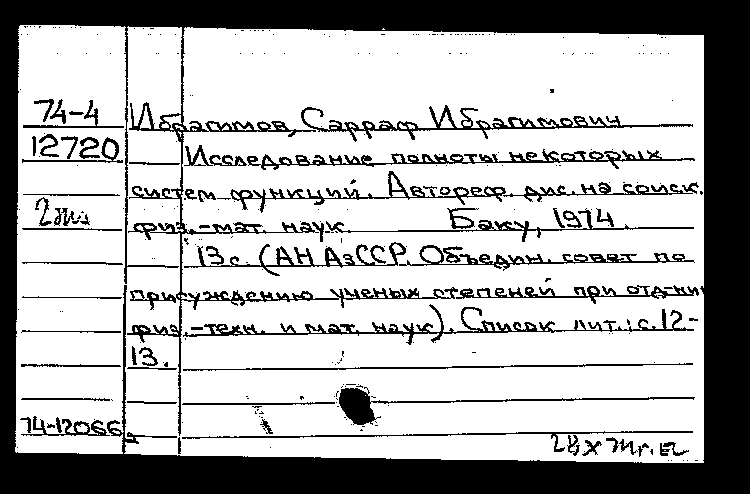 74-4 Ибрагимов, Сарраф Ибрагимович
12720 Исследование полноты некоторых
систем функций. Автореф. дис. на соиск.
физ.-мат. наук. Баку, 1974.
13 с. (АН АзССР. Объедин. совет по
присуждению ученых степеней при отд-нии
физ.-техн. и мат. наук). Список лит.: с. 12-
13.
74-12066